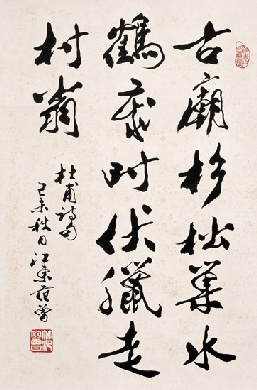 古廟杉松巢水
鶴歲时伏臘走
村翁
杜甫詩句
己未秋日江東范曾